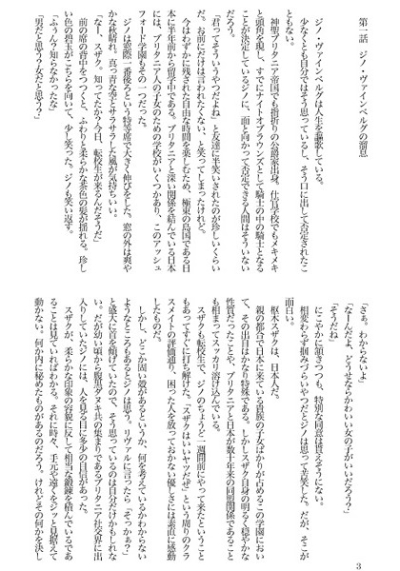 第一話　ジノ・ヴァインベルグの溜息
ジノ・ヴァインベルグは人生を謳歌している。
少なくとも自分ではそう思っているし、そう口に出して否定されたこ
ともない。
神聖ブリタニア帝国でも指折りの公爵家出身。士官学校でもメキメキ
と頭角を現し、すでにナイトオブラウンズとして騎士の中の騎士となる
ことが決定しているジノに、面と向かって否定できる人間はそういない
だろう。
「君ってそういうやつだよね」と友達に半笑いされたのが珍しいくらい
だ。お前にだけは言われたくない、と笑ってしまったけれど。
今はわずかに残された自由な時間を楽しむため、極東の島国である日
本に半年前から留学中である。ブリタニアと深い関係を結んでいる日本
には、ブリタニア人の子女のための学校がいくつかあり、このアッシュ
フォード学園もその一つだった。
ジノは窓際一番後ろという特等席で大きく伸びをした。窓の外は爽や
かな秋晴れ。真っ青な空とサラサラした風が気持ちいい。
「なー、スザク。知ってたか？今日、転校生が来るんだそうだ」
前の席の背中をつつくと、ふわりと柔らかな茶色の髪が揺れる。珍し
い色の碧玉がこちらを向いて、少し笑った。ジノも笑い返す。
「ふぅん？知らなかったな」
「男だと思う？女だと思う？」
「さぁ。わからないよ」
「なーんだよ。どうせならかわいい女の子がいいだろう？」
「そうだね」
にこやかに頷きつつも、特別な同意は貰えそうにない。
相変わらず掴みづらいやつだとジノは思って苦笑した。だが、そこが
面白い。
枢木スザクは、日本人だ。
親の都合で日本に来ている貴族の子女ばかりが占めるこの学園におい
て、その出自はかなり特殊である。しかしスザク自身の明るく穏やかな
性質だったことや、ブリタニアと日本が数十年来の同盟関係であること
も相まってスッカリ溶け込んでいる。
スザクも転校生で、ジノのちょうど一週間前にやって来たということ
もあってすぐに打ち解けた。「スザクはいいヤツだぜ」という周りのクラ
スメイトの評価通り、困った人を放っておかない優しさには素直に感動
したものだ。
しかし、どこか固い殻があるというか、何を考えているかわからない
ようなところもあるとジノは思う。リヴァルに言ったら「そっかぁ？」
と盛大に首を傾げていたので、そう思っているのは自分だけかもしれな
い。だが幼い頃から腹黒ダヌキ共の集まりであるブリタニア社交界に出
入りしていたジノには、人を見る目に多少の自信があった。
スザクが、柔らかな印象の容貌に反して相当な鍛錬を積んでいるであ
ることは見ていればわかる。それに時々、手元や遠くをジッと見据えて
動かない。何か内に秘めたものがあるのだろう。けれどその何かを決し
3